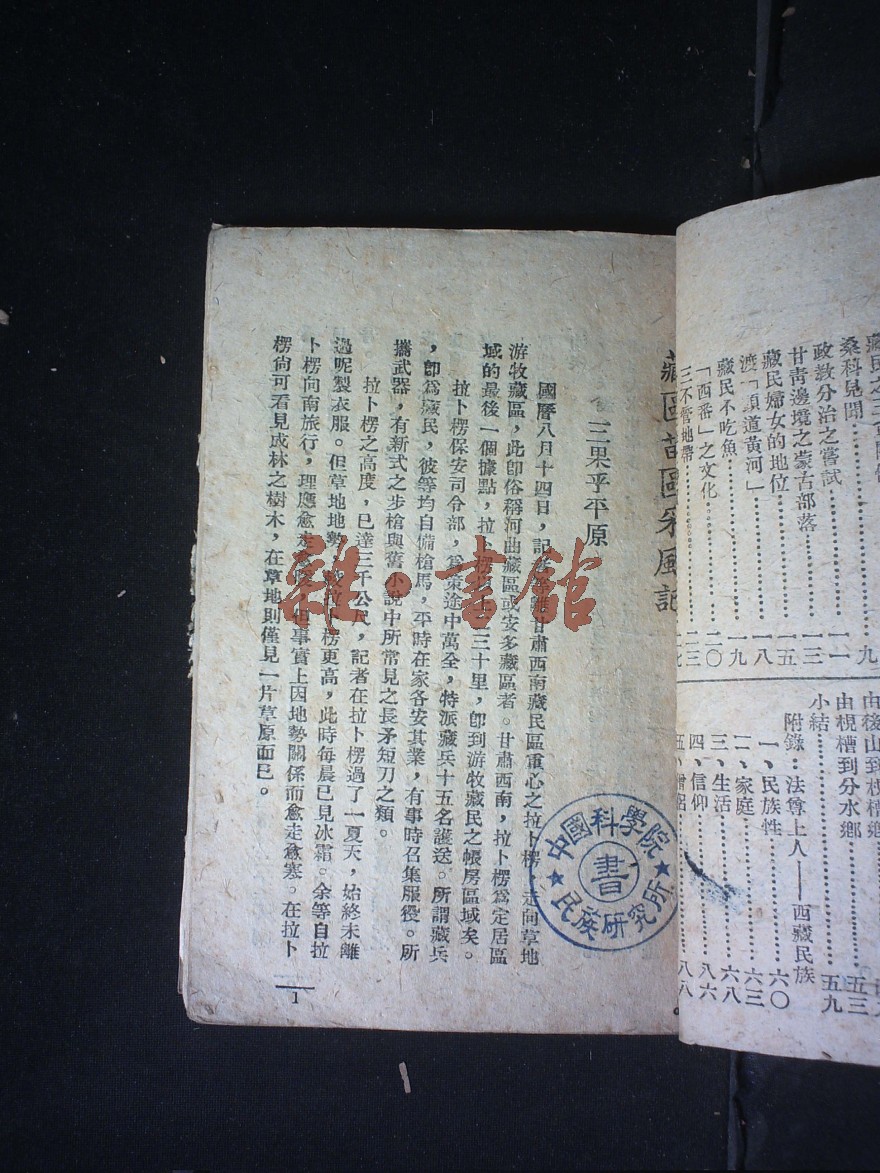 藏民不吃魚……………一九
渡「頭道黃河」……………一八
藏民婦女的地位……………一五
甘青邊境之蒙古部落
政教分治之嘗試……………一三
桑科見聞……………一一
「西番」之文化……………二〇
三不管地帶……………二三
由後山到梘槽鄉
由梘槽到分水鄉……………五三
小結……………五九
附錄:法尊上人——西藏民族
一、民族性……………六〇
二、家庭……………六三
三、生活……………六八
四、信仰……………八六
五、僧侶……………八八
藏區苗區采風記
三果乎平原
國曆八月十四日,記者等離甘肅西南藏民區重心之拉卜楞,走向草地
游牧藏區,此卽俗稱河曲藏區或安多藏區者。甘肅西南,拉卜楞爲定居區
域的最後一個據點,拉卜楞以上二三十里,卽到游牧藏民之帳房區域矣。
拉卜楞保安司令部,爲策途中萬全,特派藏兵十五名護送。所謂藏兵
,卽爲藏民,彼等均自備槍馬,平時在家各安其業,有事時召集服役。所
攜武器,有新式之步槍與舊小說中所常見之長矛短刀之類。
拉卜楞之高度,已達三千公尺,記者在拉卜楞過了一夏天,始終未離
過呢製衣服。但草地地勢,較拉卜楞更高,此時每晨已見冰霜。余等自拉
卜楞向南旅行,理應愈走愈暖,但事實上因地勢關係而愈走愈寒。在拉卜
楞尙可看見成林之樹木,在草地則僅見一片草原而已。
1
中國科學院
民族研究所
書
雜·書館